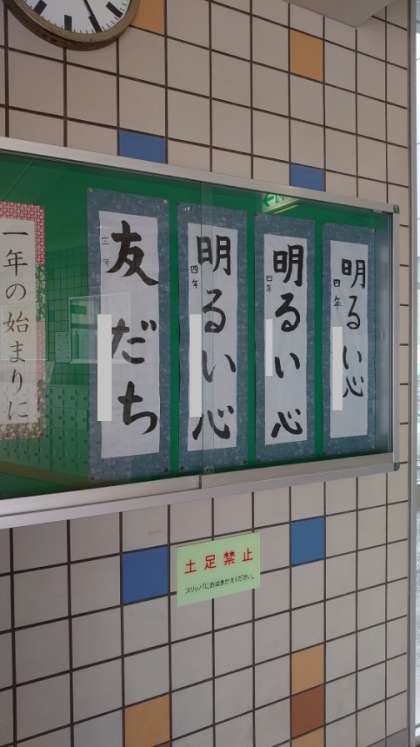 一年の始まりに
友だち
三年
明るい心
四年
明るい心
四年
明るい心
四年
土足禁止
スリッパにおはきかえください。